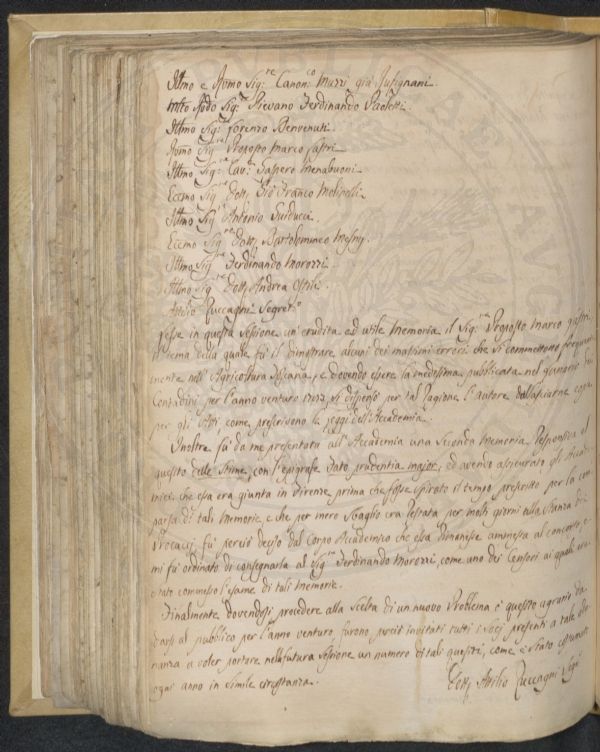 Illmo e Rvmo Sig.re Canon.co Muzzi già Rutignani.
Molto Sig.re Pievano Ferdinando Paoletti.
Illmo Sig.re Lorenzo Benvenuti.
Rvmo Sig.re Proposto Marco Lastri.
Illmo Sig.re Cav.re Gaspero Menabuoni.
Eccmo Sig.re Dott. Gio Franco Molinelli.
Illmo Sig.re Antonio
Eccmo Sig.re Dott. Bartolommeo Mesny.
Illmo Sig.re Ferdinando Morozzi.
Illmo Sig.re Dott. Andrea
Attilio Zuccagni Segret.o
Lesse in questa Sessione un'erudita ed utile Memoria il Sig.re Proposto Marco Lastri,
il tema della quale fù il dimostrare alcuni dei massimi errori che si commettono frequente
mente nell'Agricoltura Toscana, e dovendo essere la medesima pubblicata nel
Contadini per l'anno venturo si dispensò per tal ragione l'autore dal lasciarne copia
per gli Atti come prescrivono le Leggi dell'Accademia.
Inoltre fù da me presentata all'Accademia una Seconda Memoria Responsiva al
quesito delle Stime, con l'epigrafe Dato prudentia major, ed avendo assicurato gli Acade
mici che essa era giunta in Firenze prima che fosse spirato il tempo prefisso per la com
parsa di tali Memorie, e che per mero sbaglio era restata per molti giorni nella Stanza de'
Procacci, fù perciò deciso dal Corpo Accademico che essa rimanesse ammessa al concorso, e
mi fù ordinato di consegnarla al Sig.re Ferdinando Morozzi, come uno dei Censori ai quali era
stato commesso l'esame di tali Memorie.
Finalmente dovendosi procedere alla Scelta di un nuovo Problema o quesito agrario da
darsi al pubblico per l'anno venturo, furono perciò invitati tutti i Socj presenti a tale Adu
nanza a voler portare nella futura Sessione un numero di tali quesiti, come è stato costumato
ogni anno in simile circostanza.
Dott. Attilio Zuccagni Seg.rio